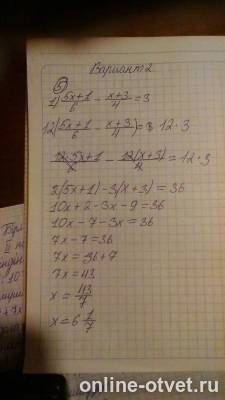 Вариант 2
5
1) (5x+1)/6 - (x+3)/4 = 3
12((5x+1)/6 - (x+3)/4) = 12·3
12·5x+1/6 - 12(x+3)/4 = 12·3
2(5x+1)-3(x+3)=36
10x+2-3x-9=36
10x-7-3x=36
7x-7=36
7x=36+7
7x=43
x=43/7
x=6 1/7
online-otvet.ru